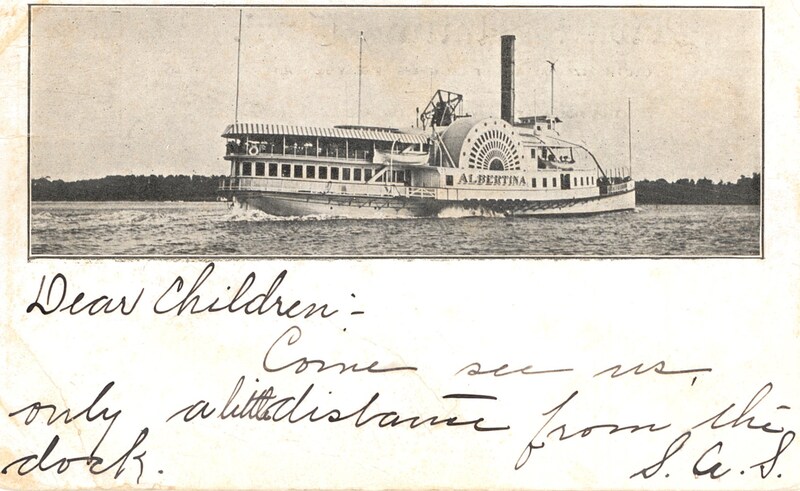 ALBERTINA
Dear Children:-
Come see us,
only a little distance from the
dock. S. A. S.